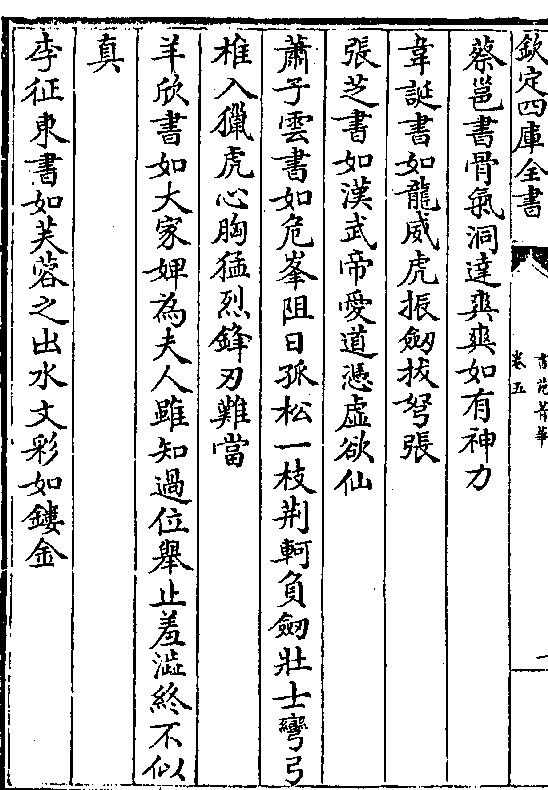 欽定四庫全書
書苑菁華
卷五
一
蔡邕書骨氣洞達爽爽如有神力
韋誕書如龍威虎振劔拔弩張
張芝書如漢武帝愛道憑虛欲仙
蕭子雲書如危峯阻日孤松一枝荆軻負劔壯士彎弓
椎入獵虎心胸猛烈鋒刃難當
羊欣書如大家婢為夫人雖知過位舉止羞澁終不似
真
李征東書如芙蓉之出水文彩如鏤金